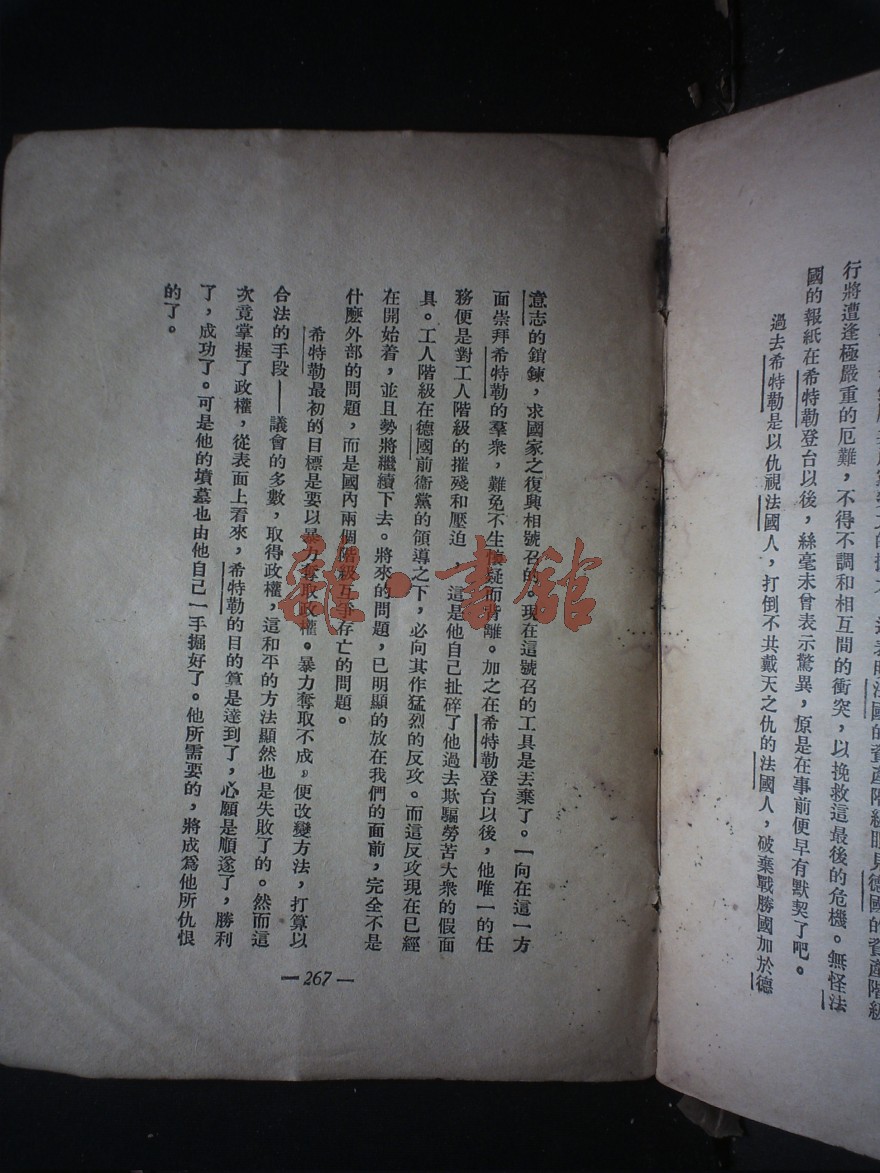 法國的資產階級眼見德國的資產階級
行將遭逢極嚴重的厄難，不得不調和相互間的衝突，以挽救這最後的危機。無怪法
國的報紙在希特勒登台以後，絲毫未曾表示驚異，原是在事前便早有默契了吧。
過去希特勒是以仇視法國人，打倒不共戴天之仇的法國人，破棄戰勝國加於德
意志的鎖鍊，求國家之復興相號召的。現在這號召的工具是丟棄了。一向在這一方
面崇拜希特勒的羣衆，難免不生懷疑而背離。加之在希特勒登台以後，他唯一的任
務便是對工人階級的摧殘和壓迫，這是他自己扯碎了他過去欺騙勞苦大衆的假面
具。工人階級在德國前衞黨的領導之下，必向其作猛烈的反攻。而這反攻現在已經
在開始着，並且勢將繼續下去。將來的問題，已明顯的放在我們的面前，完全不是
什麼外部的問題，而是國內兩個階級互爭存亡的問題。
希特勒最初的目標是要以暴力奪取政權。暴力奪取不成，便改變方法，打算以
合法的手段——議會的多數，取得政權，這和平的方法顯然也是失敗了的。然而這
次竟掌握了政權，從表面上看來，希特勒的目的算是達到了，心願是順遂了，勝利
了，成功了。可是他的墳墓也由他自己一手掘好了。他所需要的，將成爲他所仇恨
的了。
—267—
雜·書館